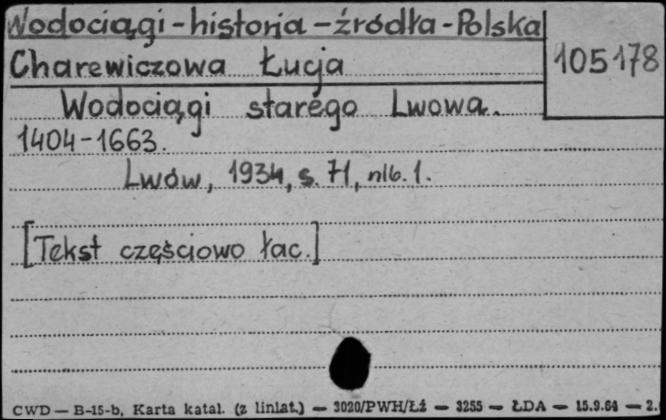 Wodociągi-historia-źródła-Polska
105178
Charewiczowa Łucja
Wodociągi starego Lwowa.
1404-1663.
Lwów, 1934, s. 71, nlb. 1.
[Tekst częściowo łac.]
CWD — B-15-b, Karta katal. (z liniat.) — 3020/PWH/Łź — 3255 — ŁDA — 15.9.64 — 2.